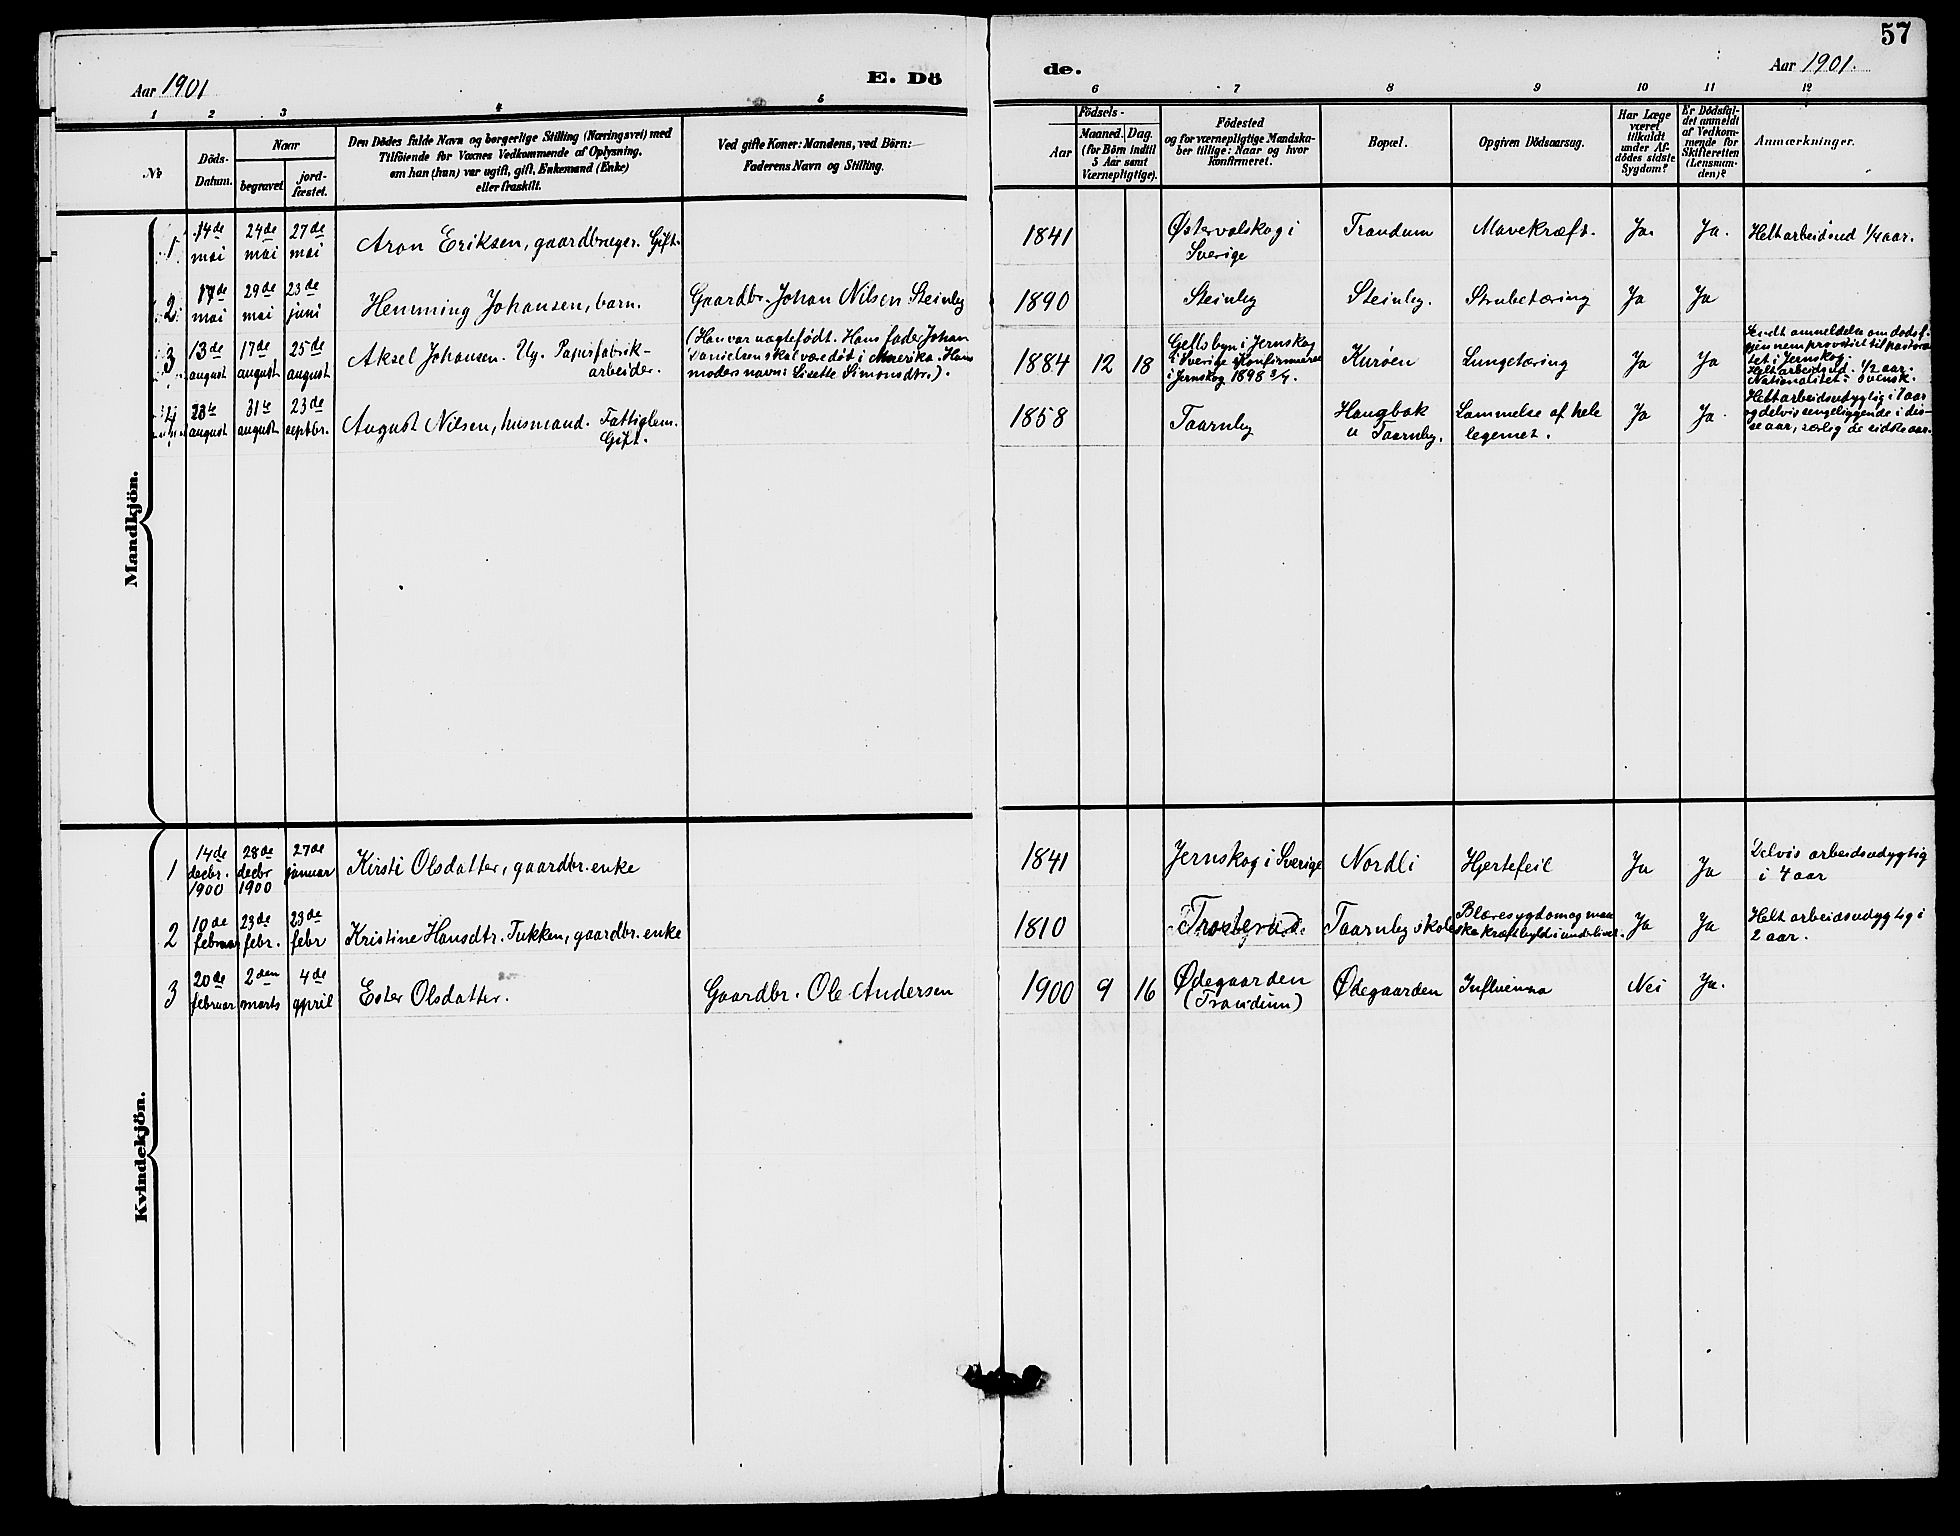 57
Aar 1901
E. Dö
de.
Aar 1901.
1 2 3 4 5 6 7 8 9 10 11 12
No
Döds-
Datum.
Naar
begravet
jord-
fæstet.
Den Dödes fulde Navn og borgerlige Stilling (Næringsvei) med
Tilföiende for Voxnes Vedkommende af Oplysning,
om han (hun) var ugift, gift, Enkemand (Enke)
eller fraskilt.
Ved gifte Koner: Mandens, ved Börn:
Faderens Navn og Stilling.
Födsels-
Aar
Maaned. Dag.
(for Börn indtil
5 Aar samt
Værnepligtige).
Födested
og for værnepligtige Mandska-
ber tillige: Naar og hvor
konfirmeret.
Bopæl.
Opgiven Dödsaarsag.
Har Læge
været
tilkaldt
under Af-
dödes sidste
Sygdom?
Er Dödsfal-
det anmeldt
af Vedkom-
mende for
Skifteretten
(Lensman-
den)?
Anmærkninger.
Mandkjön.
1 14de mai 24de mai 27de mai Aron Eriksen, gaardbruger. Gift. 1841 Østervalskog i Sverige Trandum Mavekræft. Ja. Ja. Helt arbeidsud 1/4 aar.
2 17de mai 29de mai 23de juni Hemming Johansen, barn. Gaardbr. Johan Nilsen Steinby 1890 Steinby Steinby. Strubetæring Ja Ja
3 13de august 17de august 25de august Aksel Johansen. Ug. Papirfabrik-
arbeider.
(Han var uagtefødt. Hans fader Johan
Danielsen skal være død i Amerika. Hans
moders navn: Lisette Simonsdtr.).
1884 12 18
i Jernskog
i Sverige Konfirmeret
i Jernskog 1898
Kurøen Lungetæring Ja Ja
Sendt anmeldelse om dødsf.
gjennem provstiet til pastora-
tet i Jernskog.
Helt arbeidsud. 1/2 aar.
Nationalitet: svensk.
4 23de august 31te august 23de septbr. August Nilsen, husmand. Fattiglem.
Gift.
1858 Taarnby Haugbak
u Taarnby.
Lammelse af hele
legemet.
Ja Ja.
Helt arbeidsudygtig i 7 aar
og delvis sengeliggende i dis-
se aar, særlig de sidste aar.
Kvindekjön.
1 14de decbr. 1900 28de decbr 1900 27de januar Kirsti Olsdatter, gaardbr. enke 1841 Jernskog i Sverige Nordli Hjertefeil Ja Ja Delvis arbeidsudygtig
i 4 aar
2 10de februar 23de febr. 23de febr Kristine Hansdtr. Tukken, gaardbr. enke 1810 Trosterud Taarnby skole Blæresygdom og maa-
ske kræftbyld i underlivet.
Ja Ja Helt arbeidsudygtig i
2 aar.
3 20de februar 2den marts 4de april Ester Olsdatter. Gaardbr. Ole Andersen 1900 9 16 Ødegaarden
(Trandum)
Ødegaarden Influensa Nei Ja.